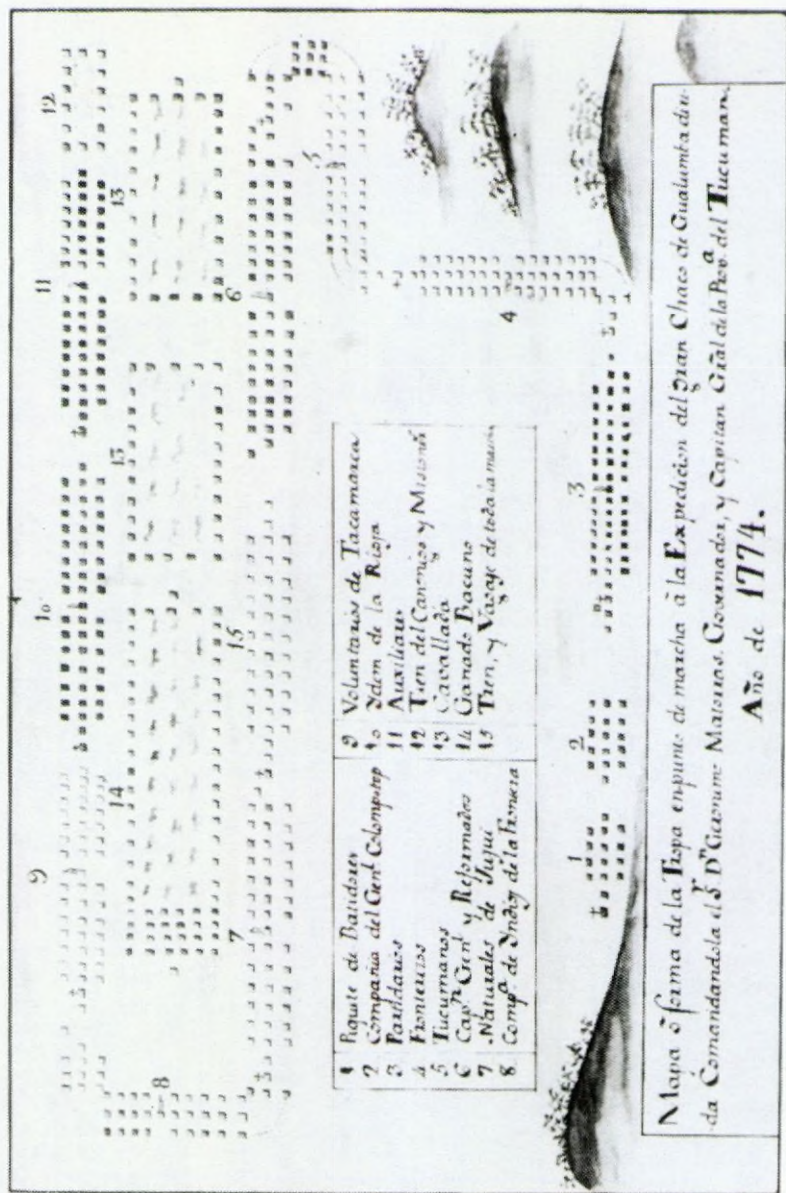 12
11
10
9
13
13
14
6
5
15
7
8
4
3
2
1
1 Piquete de Batidores
2 Compañia del Genl Colompotop
3 Partidarios
4 Fronterizos
5 Tucumanos
6 Capn Genl y Reformados
7 Naturales de Jujui
8 Compa de Yndios de la Frontera
9 Voluntarios de Catamarca
10 Ydem de la Rioja
11 Auxiliares
12 Tren del Canonigo y Mision
13 Cavallada
14 Ganado Bacuno
15 Tren, y Vagage de toda la marcha
Mapa ô forma de la Tropa en punto de marcha â la Expedicion del gran Chaco de Gualamba du-
da Comandandola el Sr. Dn Geronimo Matorras. Governador, y Capitan Gral de la Prova del Tucuman.
Año de 1774.